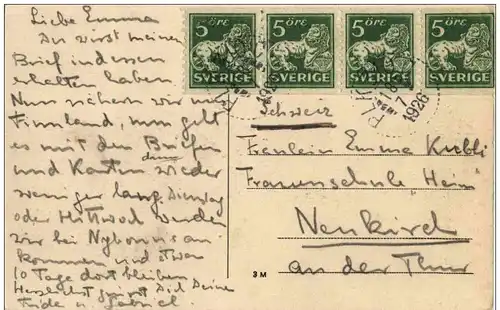 Liebe Emma
Du wirst meinen
Brief indessen
erhalten haben
Nun nähern wir uns
Finnland, nun geht
es mit den Briefen
und Karten dann wieder
weniger lang. Dienstag
oder Mittwoch werden
wir bei Nybonns an-
kommen und etwa
10 Tage dort bleiben
Herzlichst grüsst Dich Deine
Frida u. Gabriel.
5 ÖRE 5 ÖRE 5 ÖRE 5 ÖRE
SVERIGE SVERIGE SVERIGE SVERIGE
1926
18 7 1926
Schweiz
Fräulein Emma Kubli
Frauenschule Heim
Neukirch
an der Thur
3 M